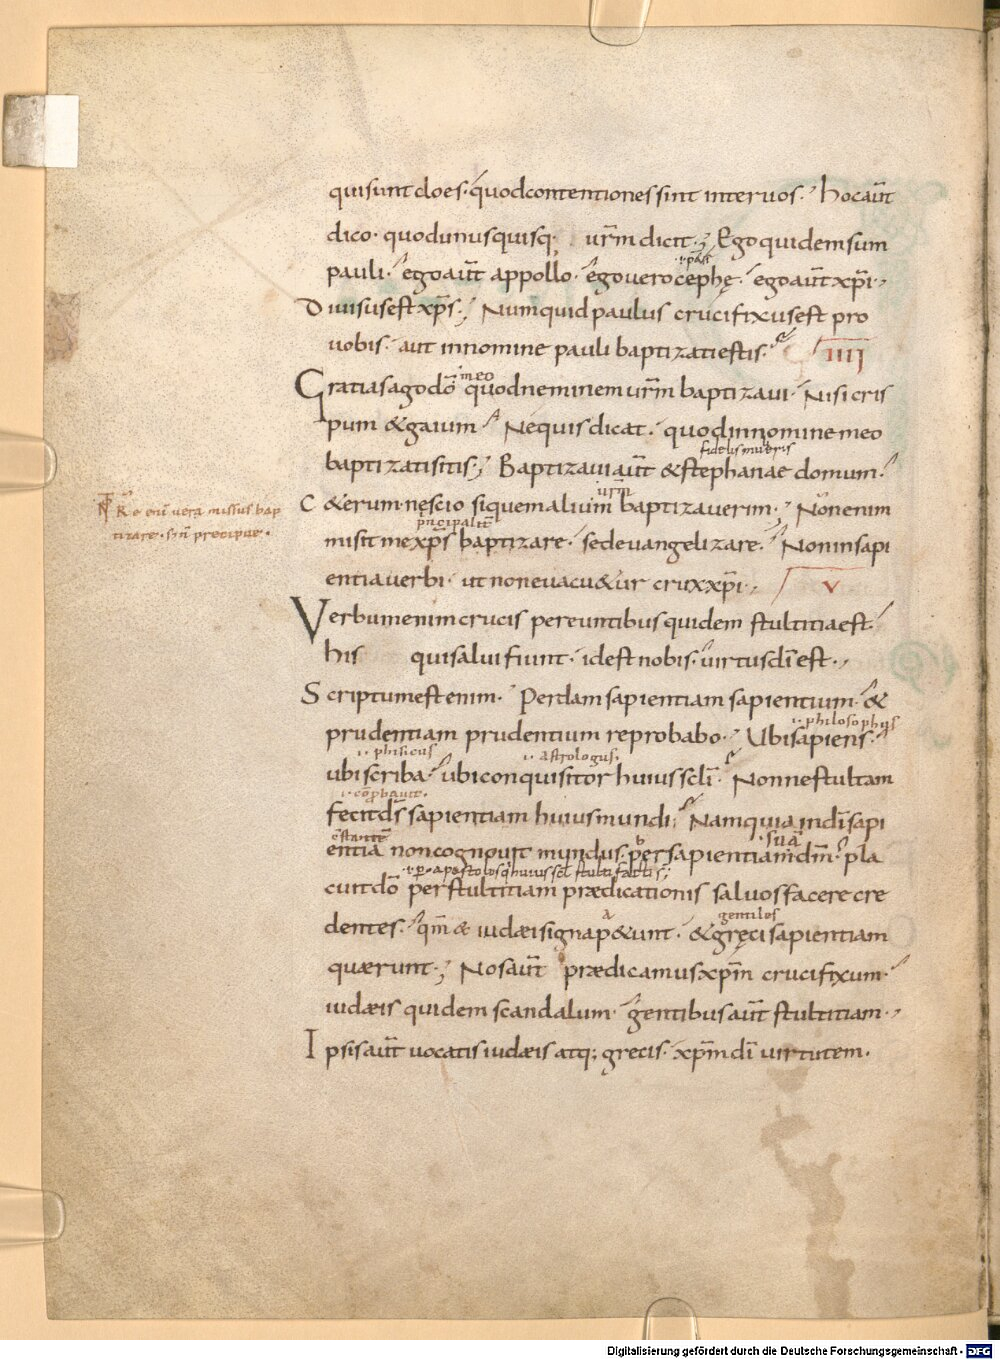 qui sunt cloes. quod contentiones sint inter uos. hoc aut̄
dico. quod unusquisq. ur̄m dicit.; Ego quidem sum
pauli. ego aut̄ appollo. ego uero cephę. ego aut̄ xp̄i.
Diuisus est xp̄s.; Numquid paulus crucifixus est pro
uobis. aut in nomine pauli baptizati estis. IIII
meo
Gratias ago dō quod neminem ur̄m baptizaui. Nisi cris
pum & gaium. Nequis dicat. quod in nomine meo
fidelis mulieris
baptizati sitis.; Baptizaui aut̄ & stephanae domum.
ur̄m
C &erum nescio si quem alium baptizauerim.; Non enim
principalit̄
misit me xp̄s baptizare. sed euangelizare. Non in sapi
entia uerbi. ut non euacu&ur crux xp̄i. V
missus bap
tizare. precipue.
Verbum enim crucis pereuntibus quidem stultitia est.
his qui salui fiunt. id est nobis. uirtus dī est.
Scriptum est enim. Perdam sapientiam sapientium. &
.i. philosophus
prudentiam prudentium reprobabo. Ubi sapiens.
.i. phisicus .i. astrologus.
ubi scriba. ubi conquisitor huius sc̄li. Nonne stultam
fecit ds̄ sapientiam huius mundi; Nam quia in dī sapi
suā
entia non cognouit mundus. per sapientiam dm̄. pla
cuit dō per stultitiam prædicationis saluos facere cre
gentiles
dentes. qm̄ & iudæi signa p&unt. & gręci sapientiam
quærunt.; Nos aut̄ prædicamus xp̄m crucifixum.
iudæis quidem scandalum. gentibus aut̄ stultitiam.
Ipsis aut̄ uocatis iudæis atq; grecis. xp̄m dī uirtutem.
Digitalisierung gefördert durch die Deutsche Forschungsgemeinschaft - DFG